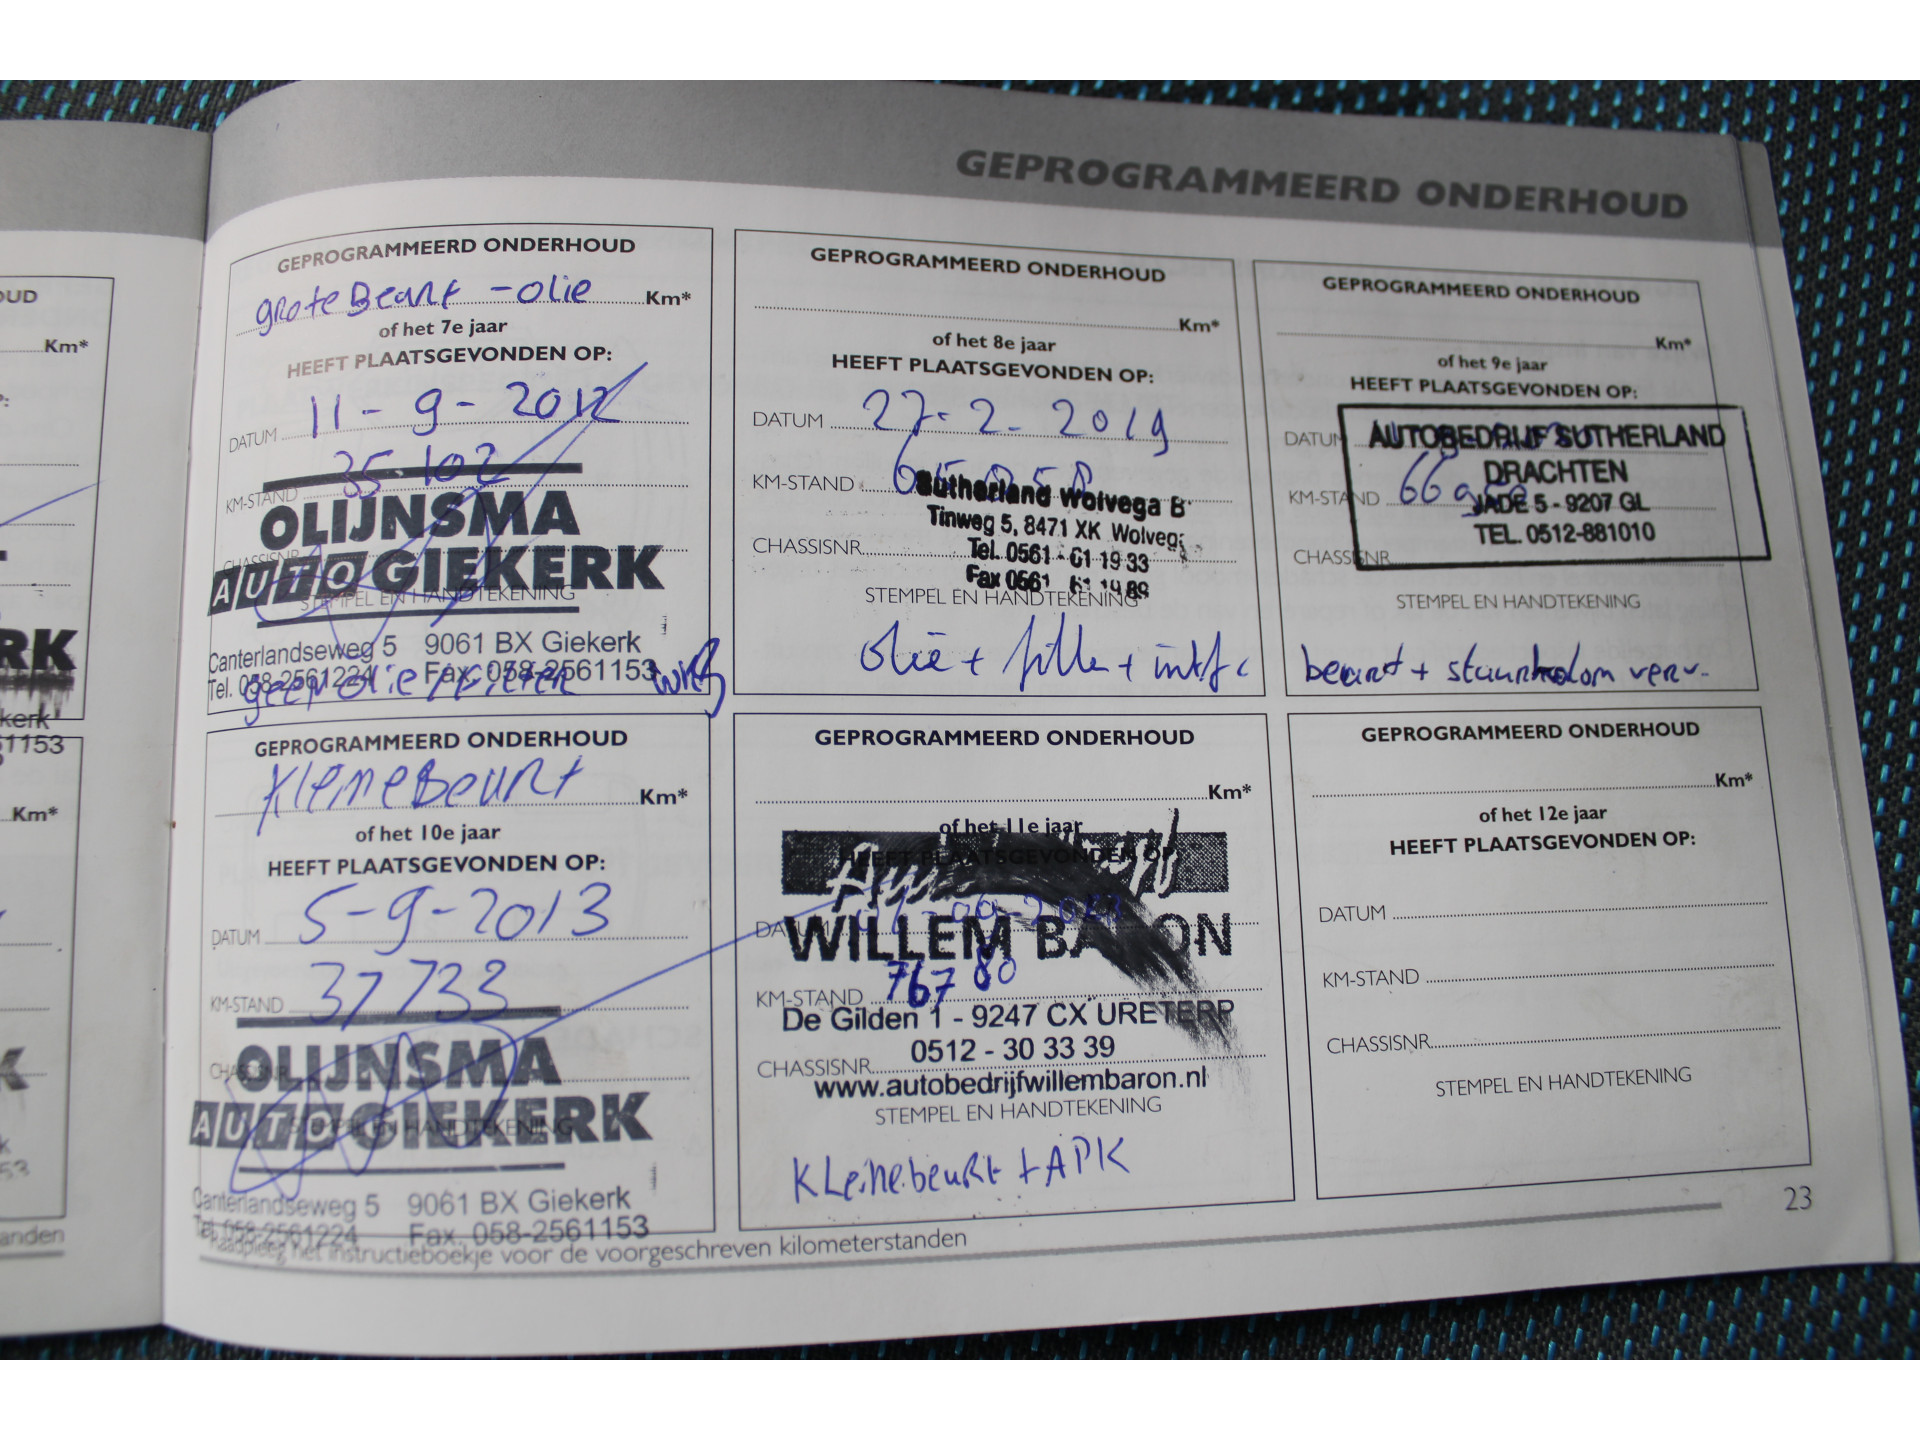 GEPROGRAMMEERD ONDERHOUD
GEPROGRAMMEERD ONDERHOUD
grote Beurt - olie Km*
of het 7e jaar
HEEFT PLAATSGEVONDEN OP:
DATUM 11 - 9 - 2012
KM-STAND 35.102
OLIJNSMA
CHASSISNR
AUTO GIEKERK
STEMPEL EN HANDTEKENING
Canterlandseweg 5 9061 BX Giekerk
Tel. 058-2561224 Fax. 058-2561153
GEPROGRAMMEERD ONDERHOUD
Km*
of het 8e jaar
HEEFT PLAATSGEVONDEN OP:
DATUM 27-2-2019
KM-STAND
Sutherland Wolvega B
Tinweg 5, 8471 XK Wolvega
CHASSISNR
Tel. 0561 - 61 19 33
Fax 0561 61 19 89
STEMPEL EN HANDTEKENING
olie + filter +
GEPROGRAMMEERD ONDERHOUD
Km*
of het 9e jaar
HEEFT PLAATSGEVONDEN OP:
DATUM
AUTOBEDRIJF SUTHERLAND
DRACHTEN
KM-STAND
JADE 5 - 9207 GL
TEL. 0512-881010
CHASSISNR
STEMPEL EN HANDTEKENING
beurt + stuurkolom verv.
GEPROGRAMMEERD ONDERHOUD
Kleine Beurt Km*
of het 10e jaar
HEEFT PLAATSGEVONDEN OP:
DATUM 5-9-2013
KM-STAND 37733
OLIJNSMA
CHASSISNR
AUTO GIEKERK
STEMPEL EN HANDTEKENING
Canterlandseweg 5 9061 BX Giekerk
Tel. 058-2561224 Fax. 058-2561153
GEPROGRAMMEERD ONDERHOUD
Km*
of het 11e jaar
HEEFT PLAATSGEVONDEN OP
DATUM
WILLEM BARON
KM-STAND 76780
De Gilden 1 - 9247 CX URETERP
0512 - 30 33 39
CHASSISNR
www.autobedrijfwillembaron.nl
STEMPEL EN HANDTEKENING
Kleine beurt + APK
GEPROGRAMMEERD ONDERHOUD
Km*
of het 12e jaar
HEEFT PLAATSGEVONDEN OP:
DATUM
KM-STAND
CHASSISNR
STEMPEL EN HANDTEKENING
* Raadpleeg het instructieboekje voor de voorgeschreven kilometerstanden
23
OUD
Km*
RK
kerk
51153
Km*
anden